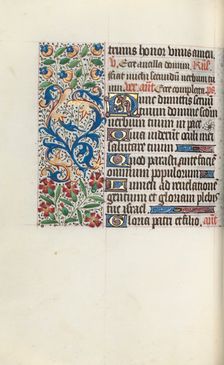 trimus honor vnus amen.
v Ecce ancilla domini. Res
fiat michi secundum verbum tu
um. ant Ecce completa. ps
Nunc dimittis seruū
tuum domine secūdū
verbum tuum in pace
Quia viderunt oculi mei
salutare tuum
Quod parasti ante facie
omnium populorum
Lumen ad reuelationē
gentium et gloriam plebis
tue israel
Gloria patri et filio. ant